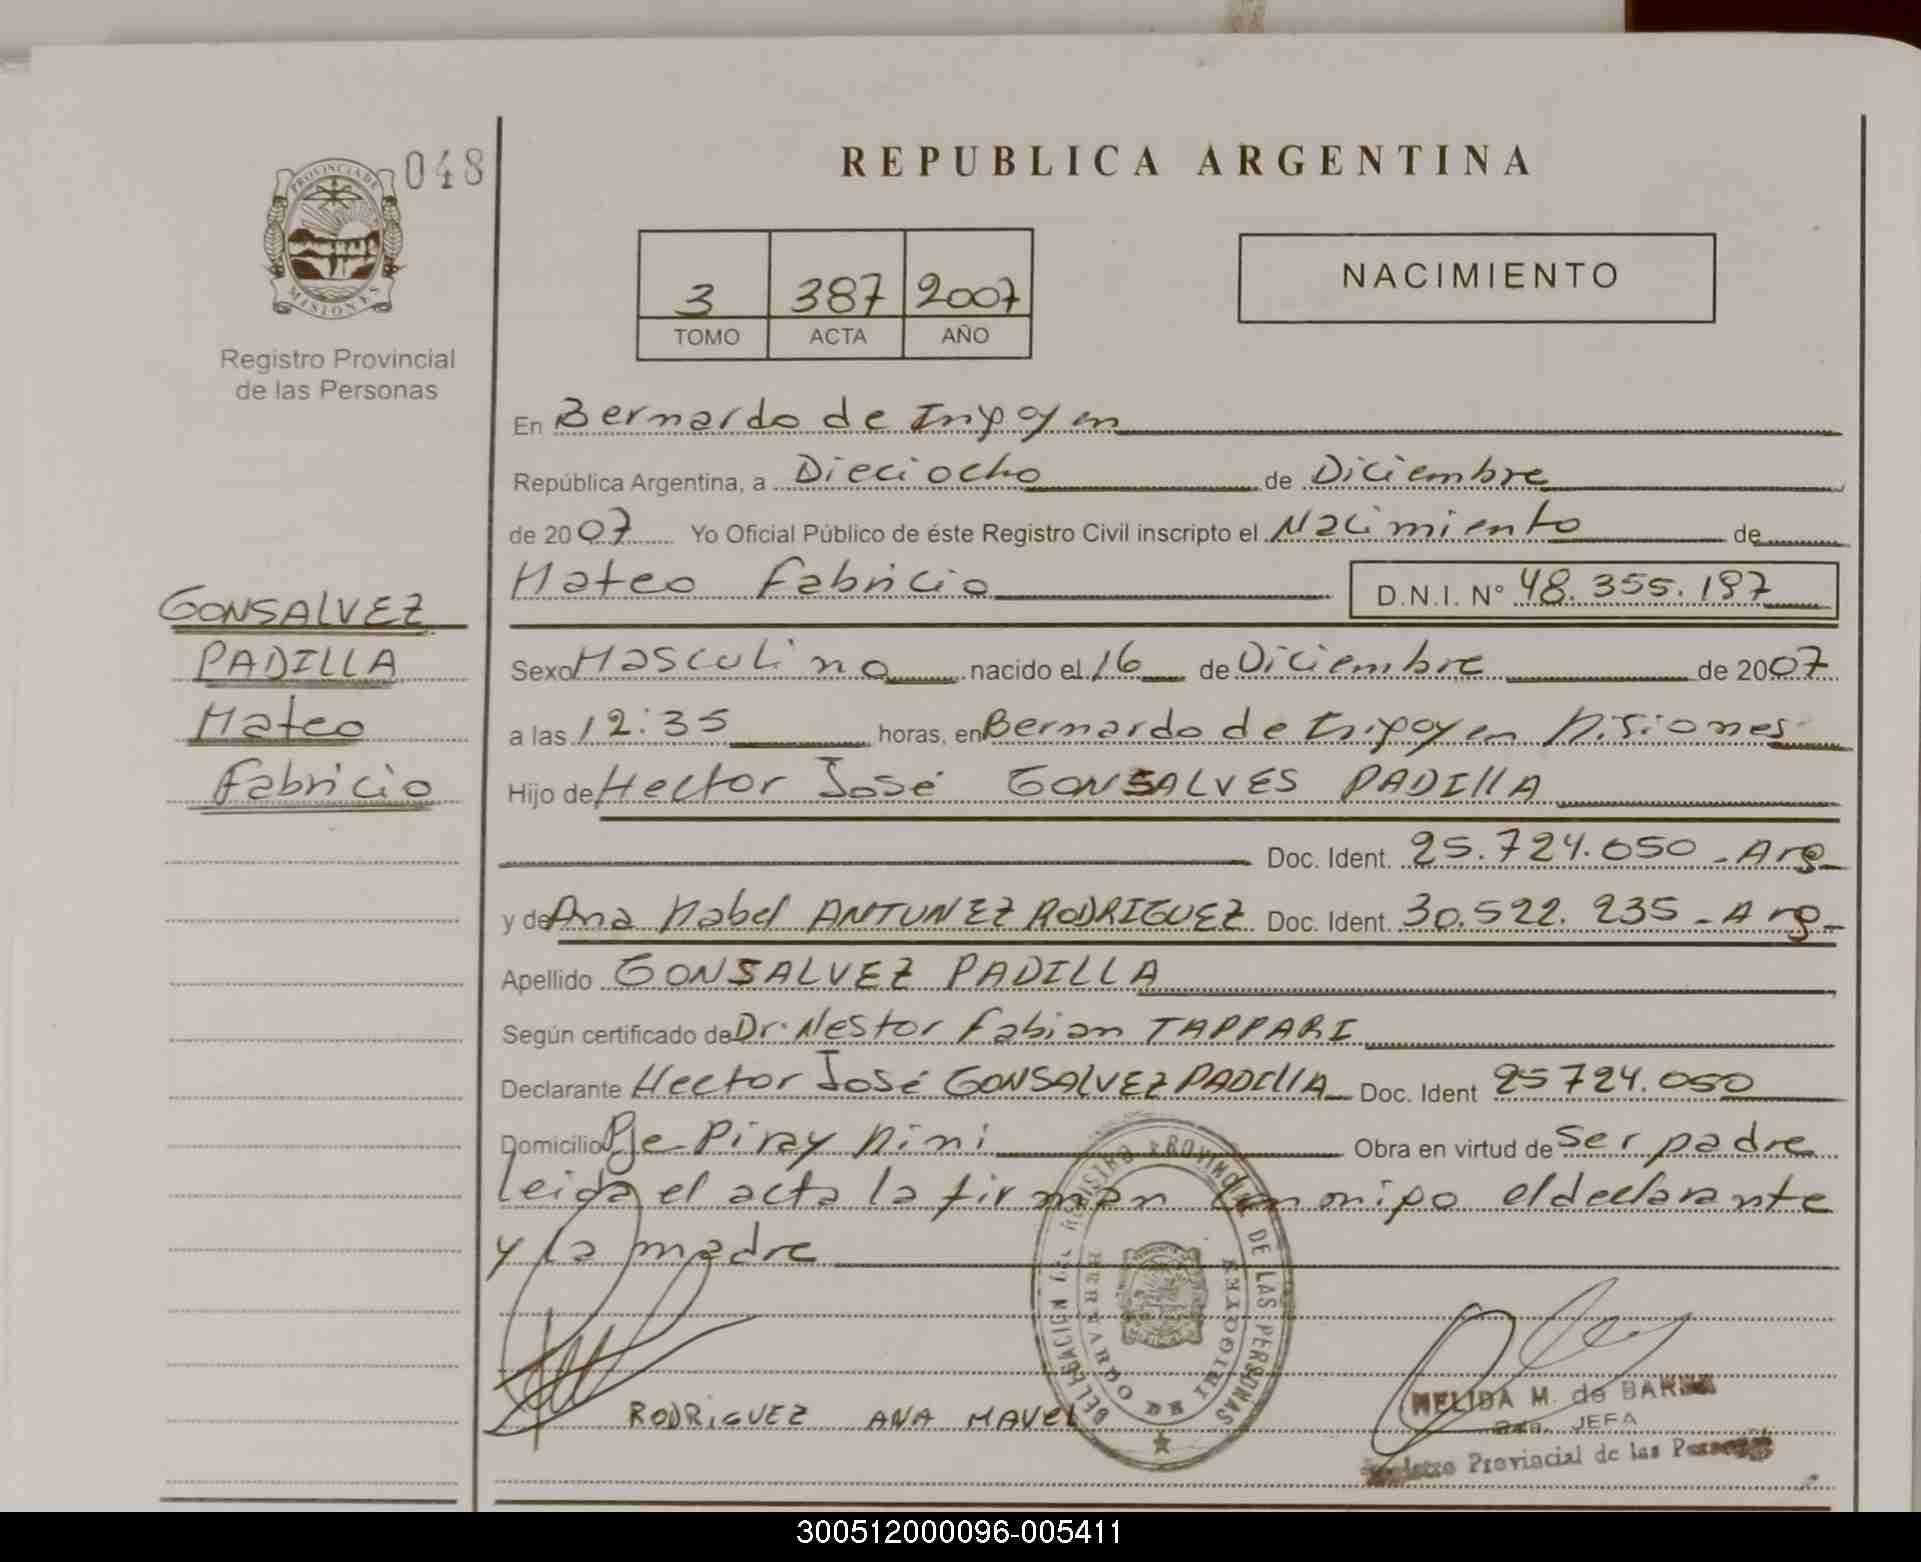 048
PROVINCIA DE
MISIONES
Registro Provincial
de las Personas
REPUBLICA ARGENTINA
3 387 2007
TOMO ACTA AÑO
NACIMIENTO
En Bernardo de Irigoyen
República Argentina, a Dieciocho de Diciembre
de 2007 Yo Oficial Público de éste Registro Civil inscripto el Nacimiento de
Mateo Fabricio D.N.I. N° 48.355.197
GONSALVEZ
PADILLA
Mateo
Fabricio
Sexo Masculino nacido el 16 de Diciembre de 2007
a las 12:35 horas, en Bernardo de Irigoyen Misiones
Hijo de Hector José GONSALVES PADILLA
Doc. Ident. 25.724.050 - Arg-
y de Ana Mabel ANTUNEZ RODRIGUEZ Doc. Ident. 30.522.235 - Arg-
Apellido GONSALVEZ PADILLA
Según certificado de Dr. Nestor Fabian TAPPARI
Declarante Hector José GONSALVEZ PADILLA Doc. Ident 25724.050
Domicilio Pje- Piray Mini Obra en virtud de Ser padre
leida el acta la firman conmigo el declarante
y la madre
DELEGACION DEL REGISTRO PROVINCIAL DE LAS PERSONAS
BERNARDO DE IRIGOYEN
RODRIGUEZ ANA MAVEL
NELIDA M. de
JEFA
Provincial de las
300512000096-005411